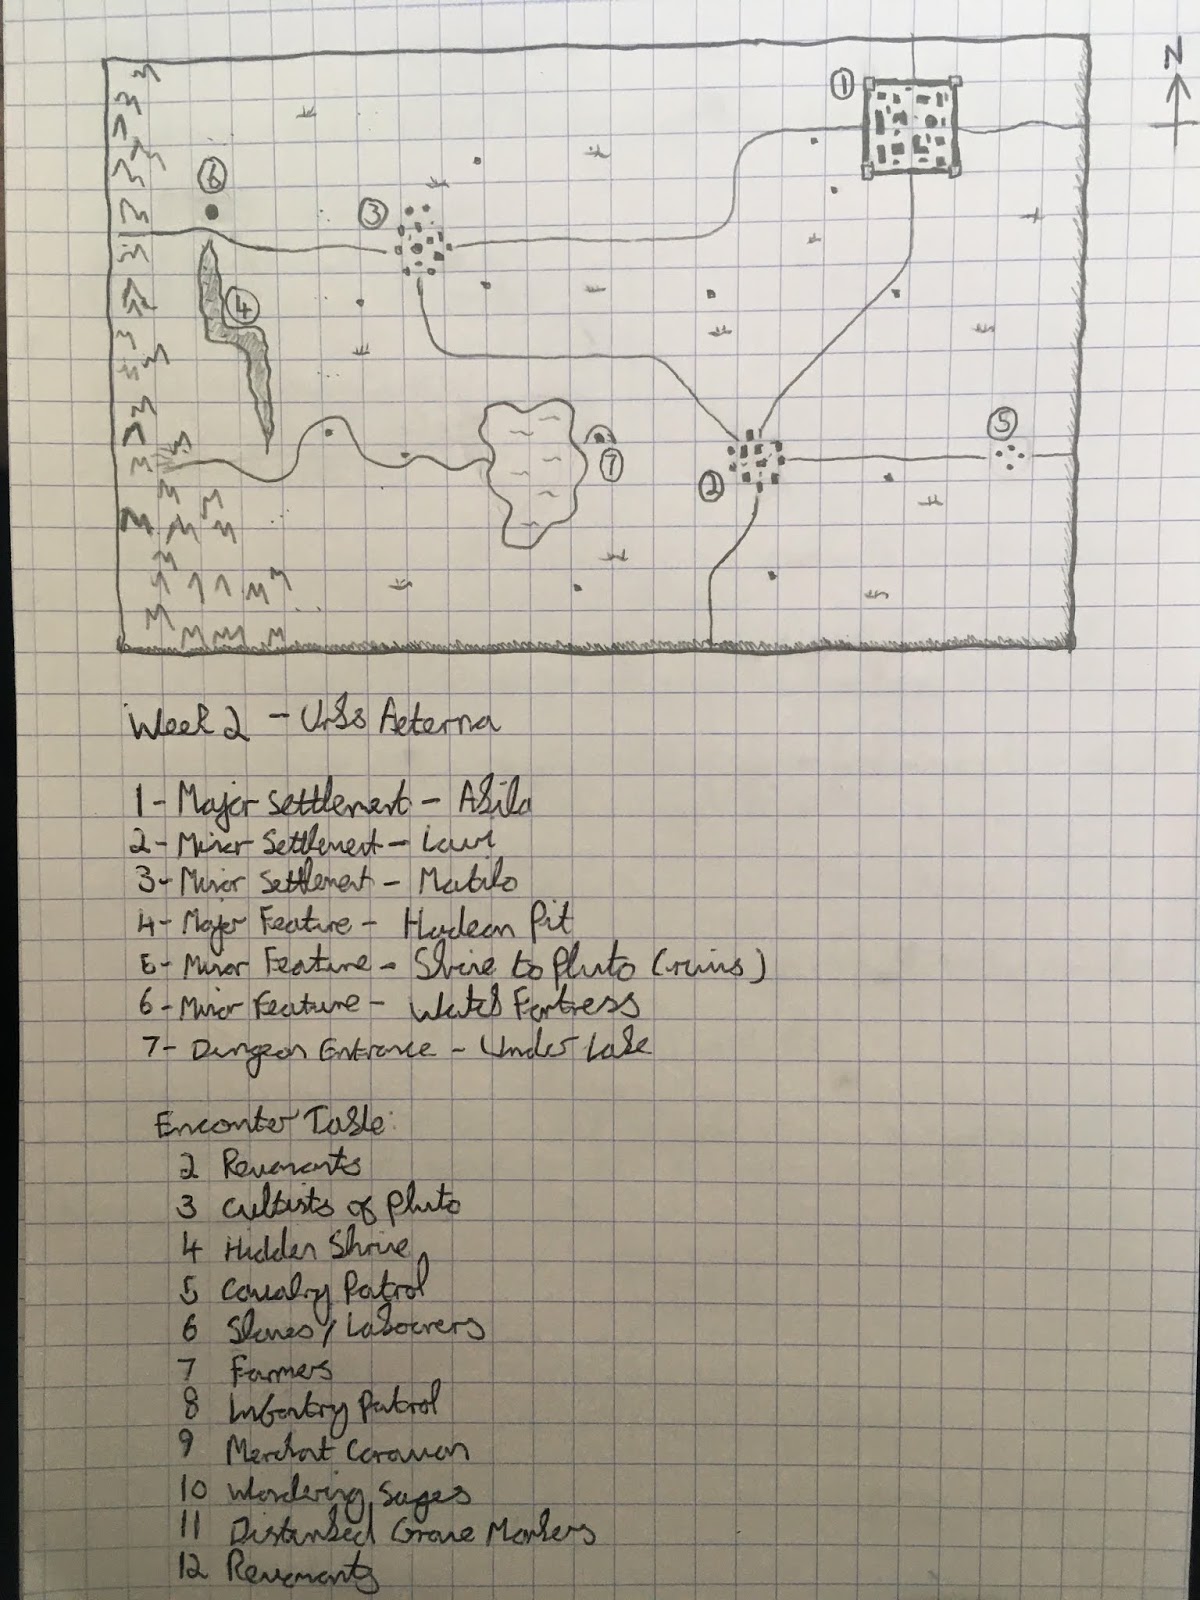 N
1
6
3
4
5
7
2
Week 2 - Urbs Aeterna
1 - Major Settlement - Abila
2 - Minor Settlement - Lauri
3 - Minor Settlement - Matilo
4 - Major Feature - Hadean Pit
5 - Minor Feature - Shrine to Pluto (ruins)
6 - Minor Feature - Watch Fortress
7 - Dungeon Entrance - Under Lake
Enconter Table:
2 Revenants
3 Cultists of Pluto
4 Hidden Shrine
5 Cavalry Patrol
6 Slaves / Labourers
7 Farmers
8 Infantry Patrol
9 Merchant Caravan
10 Wandering Sages
11 Disturbed Grave Markers
12 Revenants